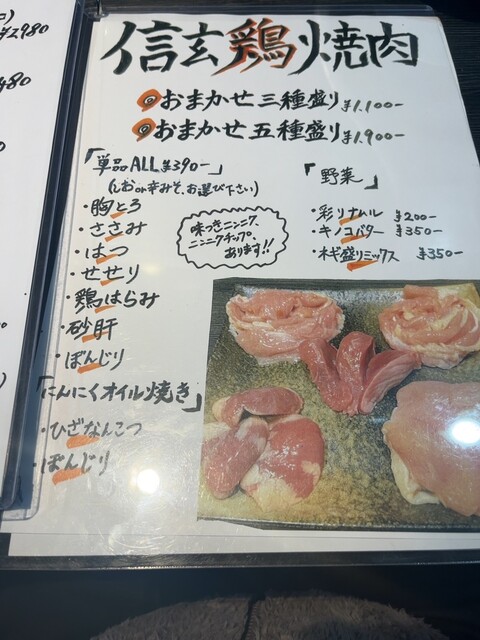 ¥2980
信玄鶏焼肉
◎おまかせ三種盛り ¥1.100-
◎おまかせ五種盛り ¥1.900-
「単品ALL¥390-」
(しおor辛みそ、お選び下さい)
・胸とろ
・ささみ
・はつ
・せせり
・鶏はらみ
・砂肝
・ぼんじり
味つきニンニク、
ニンニクチップ、
あります!!
「野菜」
・彩りナムル ¥200-
・キノコバター ¥350-
・ネギ盛りミックス ¥350-
「にんにくオイル焼き」
・ひざなんこつ
・ぼんじり